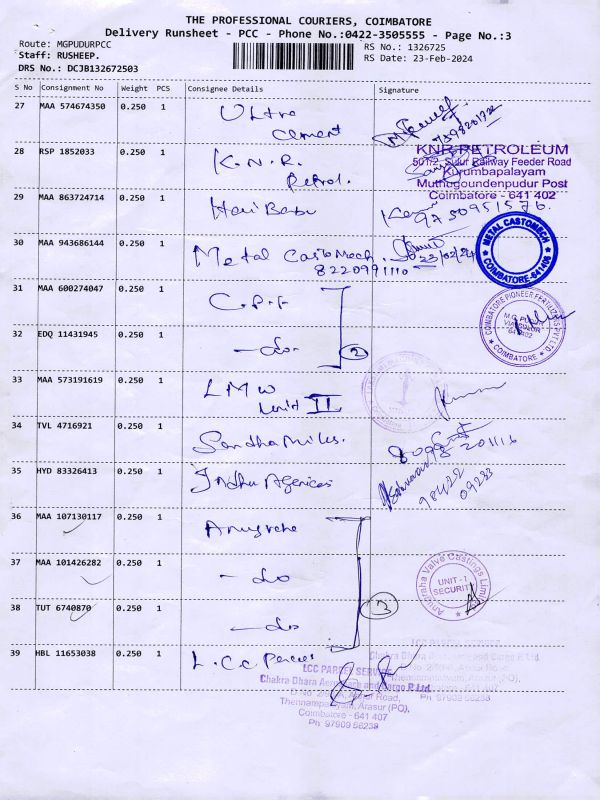 THE PROFESSIONAL COURIERS, COIMBATORE
Delivery Runsheet - PCC - Phone No.:0422-3505555 - Page No.:3
Route: MGPUDURPCC
RS No.: 1326725
Staff: RUSHEEP.
RS Date: 23-Feb-2024
DRS No.: DCJB132672503
S No Consignment No Weight PCS Consignee Details Signature
27 MAA 574674350 0.250 1 Ultra
Cement
28 RSP 1852033 0.250 1 K.N.R.
Petrol.
KNR PETROLEUM
501/2, Sulur Railway Feeder Road
Kurumbapalayam
Muthugoundenpudur Post
Coimbatore - 641 402
29 MAA 863724714 0.250 1 Hari Babu
9750951576.
30 MAA 943686144 0.250 1 Metal Casto Mech.
8220991110
23/02/24
METAL CASTOMECH
COIMBATORE-641406
31 MAA 600274047 0.250 1 C.P.F
COIMBATORE PIONEER FERTILIZERS
COIMBATORE
32 EDQ 11431945 0.250 1 -do-
2
33 MAA 573191619 0.250 1 LMW
Unit II
34 TVL 4716921 0.250 1 Sandha Mills.
35 HYD 83326413 0.250 1 Indhu Agencies
98422
09233
36 MAA 107130117 0.250 1 Anugraha
37 MAA 101426282 0.250 1 -do
Anugraha Valve Castings Limited
UNIT - I
SECURITY
38 TUT 6740870 0.250 1 -do
3
39 HBL 11653038 0.250 1 L.C.C Parcel
LCC PARCEL SERVICE
Chakra Dhara Aerospace and Cargo P. Ltd.
Thennampalayam, Arasur (PO),
Coimbatore - 641 407
Ph 97909 56238